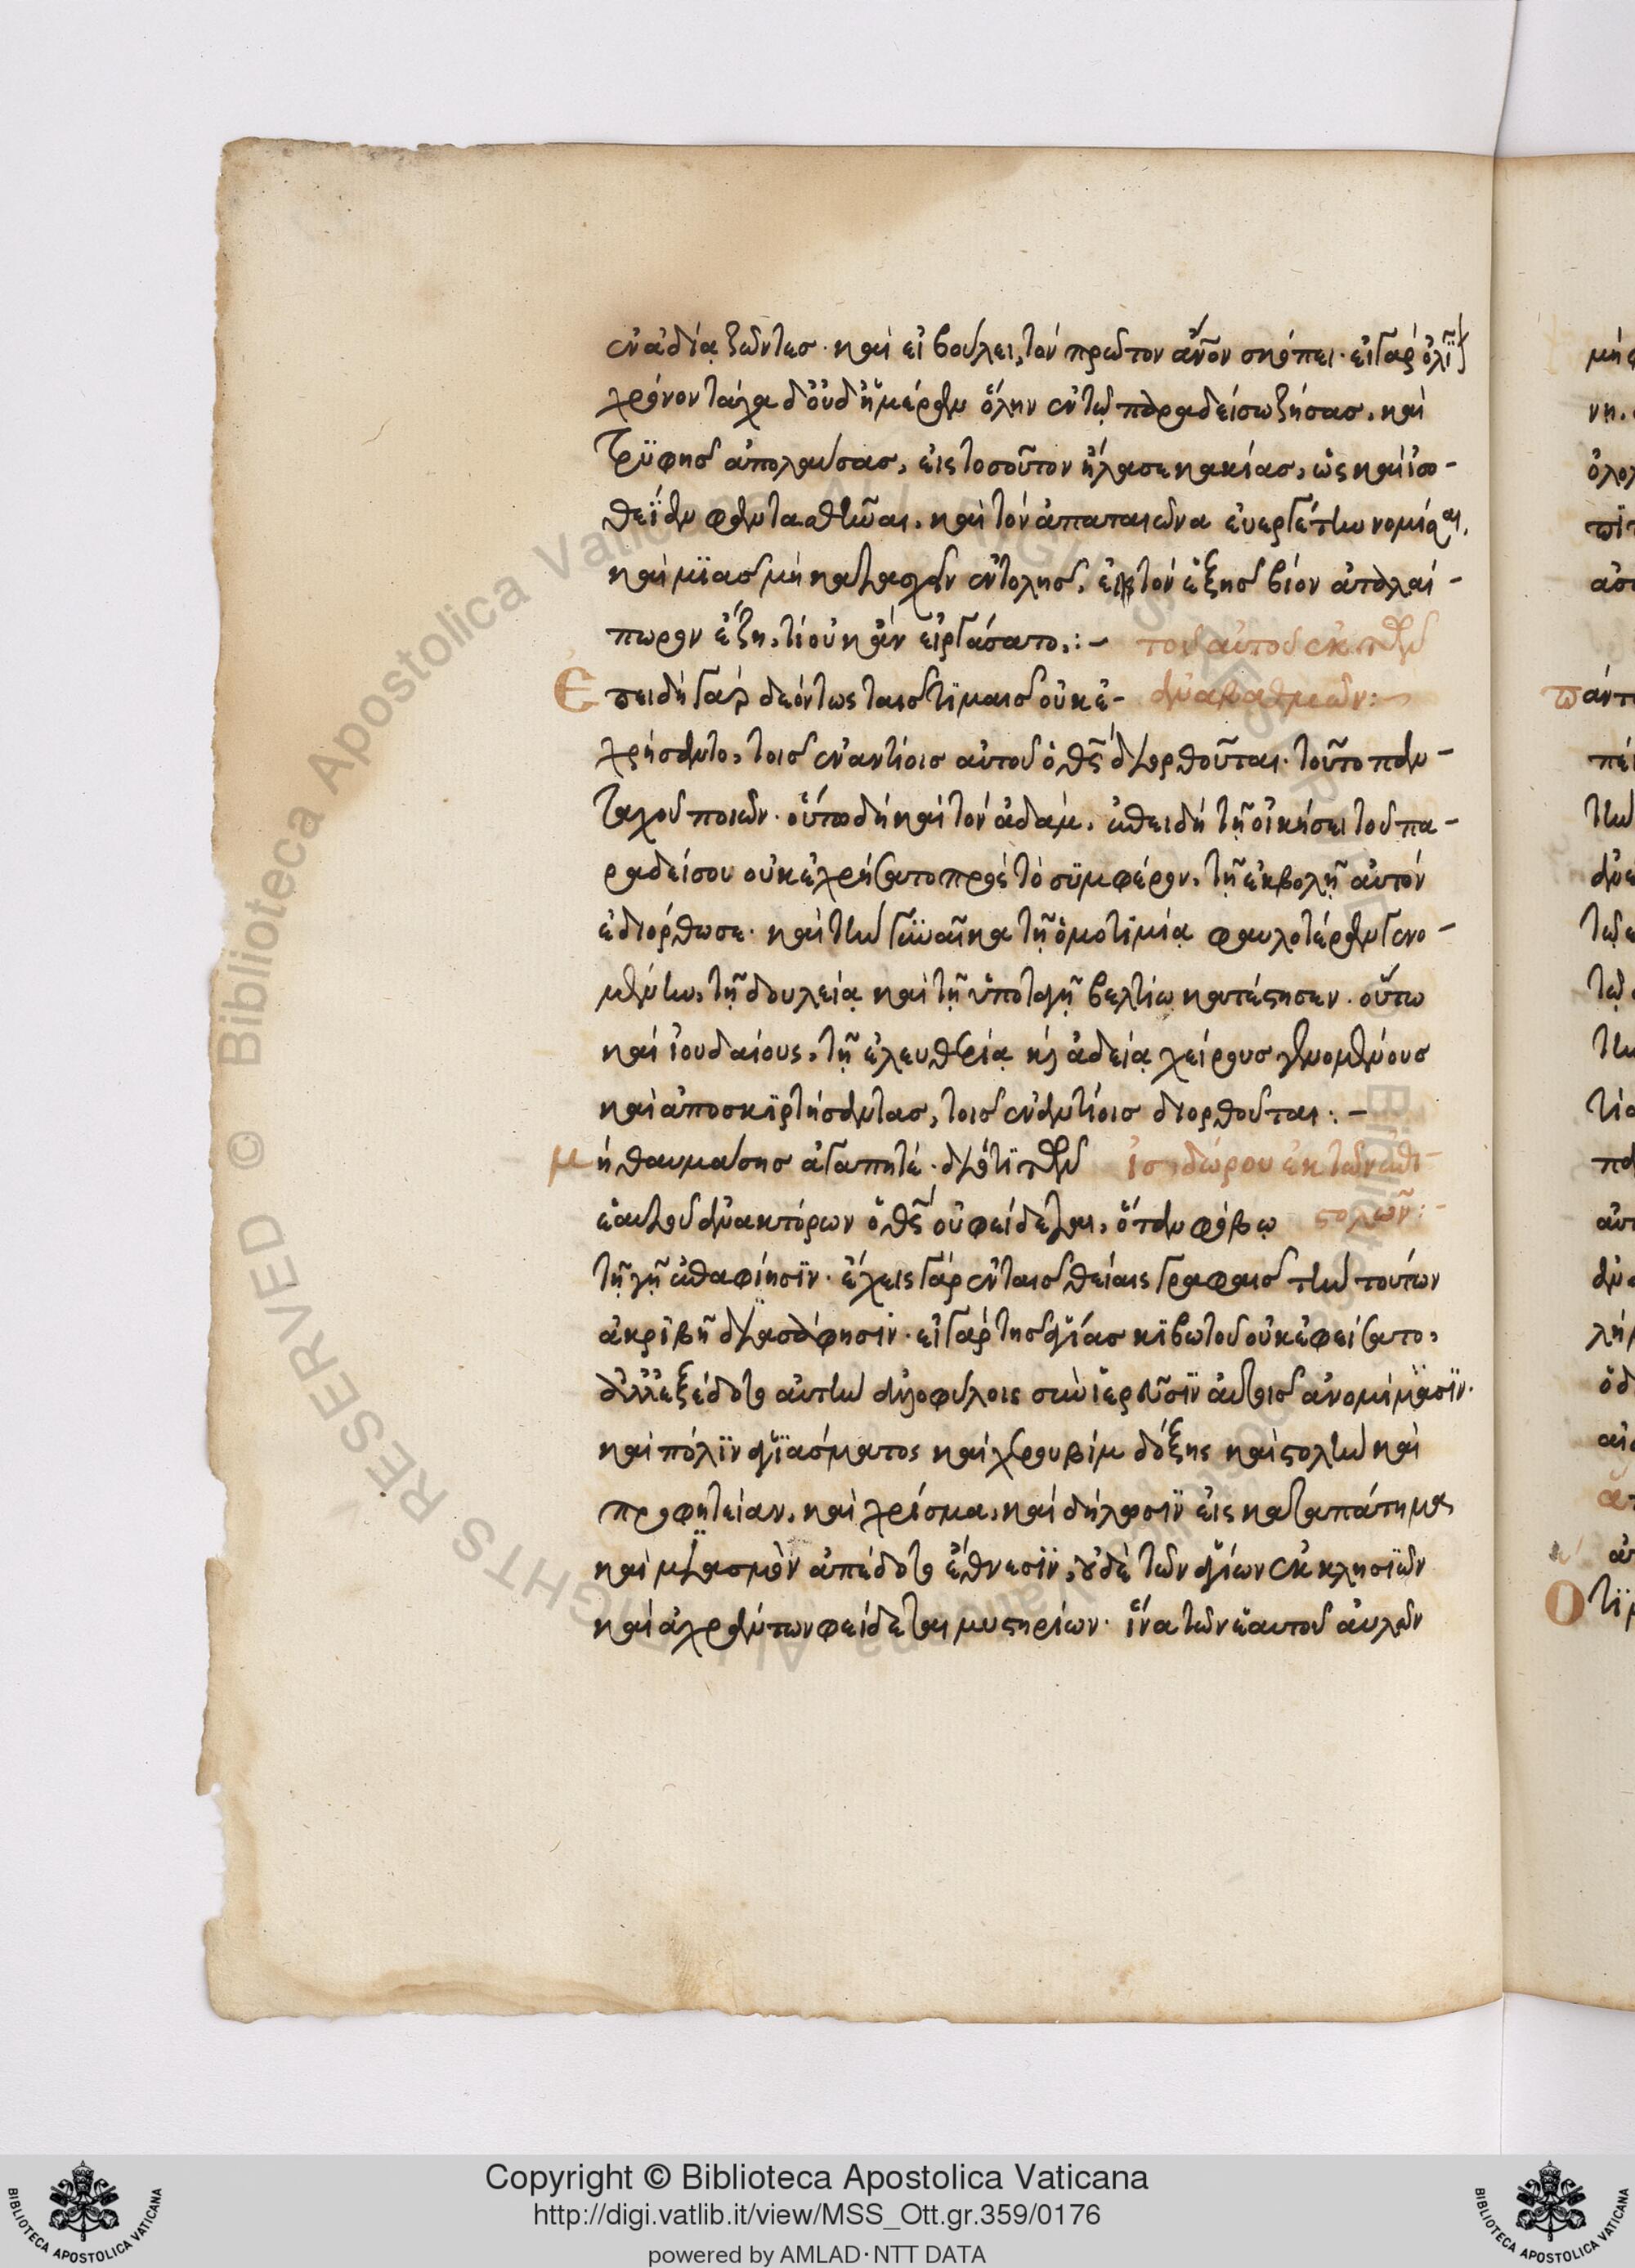 ἐν ἀδία ζῶντες· καὶ εἰ βούλει, τὸν πρῶτον ἄνον σκόπει· εἰ γὰρ ὀλί
χρόνον τάχα δ' οὐδ' ἡμέραν ὅλην ἐν τῷ παραδείσω ζήσας, καὶ
τρϋφῆς ἀπολαύσας, εἰς τοσοῦτον ἤλασε κακίας, ὡς καὶ ἰσο-
θεΐαν φαντασθῆναι, καὶ τὸν ἀπατεῶνα εὐεργέτην νομίσαι,
καὶ μϊᾶς μὴ κατασχεῖν ἐντολῆς, εἰ τὸν ἑξῆς βίον ἀταλαί-
πωρον ἔζη, τί οὐκ ἂν εἰργάσατο,:- τοῦ αὐτοῦ ἐκ τῶν
Ἐπειδὴ γὰρ δεόντως ταῖς τϊμαῖς οὐκ ἐ- ἀναβαθμῶν:-
χρήσαντο, τοῖς ἐναντίοις αὐτοῦ ὁ θς διορθοῦται· τοῦτο παν-
ταχοῦ ποιῶν· οὕτω δὴ καὶ τὸν ἀδὰμ, ἐπειδὴ τῇ οἰκήσει τοῦ πα-
ραδείσου οὐκ ἐχρήσατο πρὸς τὸ σϋμφέρον, τῇ ἐκβολῇ αὐτὸν
ἐδιόρθωσε· καὶ τὴν γϋναῖκα τῇ ὁμοτϊμίᾳ φαυλοτέραν γενο-
μένην, τῇ δουλείᾳ καὶ τῇ ὑποταγῇ βελτίω κατέστησεν· οὕτω
καὶ ἰουδαίους, τῇ ἐλευθερίᾳ κ ἀδείᾳ χείρους γενομένους
καὶ ἀποσκϊρτήσαντας, τοῖς ἐναντίοις διορθοῦται:-
μὴ θαυμάσῃς ἀγαπητέ· διότϊ τῶν ἰσιδώρου ἐκ τῶν ἐπι-
ἑαυτοῦ ἀνακτόρων ὁ θς οὐ φείδεται, ὅταν φόβῳ στολῶν:-
τῇ γῇ ἐπαφίησϊν· ἔχεις γὰρ ἐν ταῖς θείαις γραφαῖς τὴν τούτων
ἀκρϊβῆ διασάφησϊν· εἰ γὰρ τῆς ἁγίας κϊβωτοῦ οὐκ ἐφείσατο,
ἀλλ' ἐξέδοτο αὐτὴν ἀλλοφύλοις σὺν ἱερεῦσϊν αὐτοῖς ἀνομήμασϊν·
καὶ πόλϊν ἁγϊάσματος καὶ χερουβὶμ δόξης καὶ στολὴν καὶ
προφητείαν, καὶ χρίσμα, καὶ δήλωσϊν εἰς καταπάτημα
καὶ μϊασμὸν ἀπέδοτο ἔθνεσϊν, οὐδὲ τῶν ἁγίων ἐκκλησϊῶν
καὶ ἀχράντων φείδεται μυστηρίων· ἵνα τῶν ἑαυτοῦ αὐλῶν
Copyright © Biblioteca Apostolica Vaticana
http://digi.vatlib.it/view/MSS_Ott.gr.359/0176
powered by AMLAD·NTT DATA
BIBLIOTECA APOSTOLICA VATICANA
BIBLIOTECA APOSTOLICA VATICANA